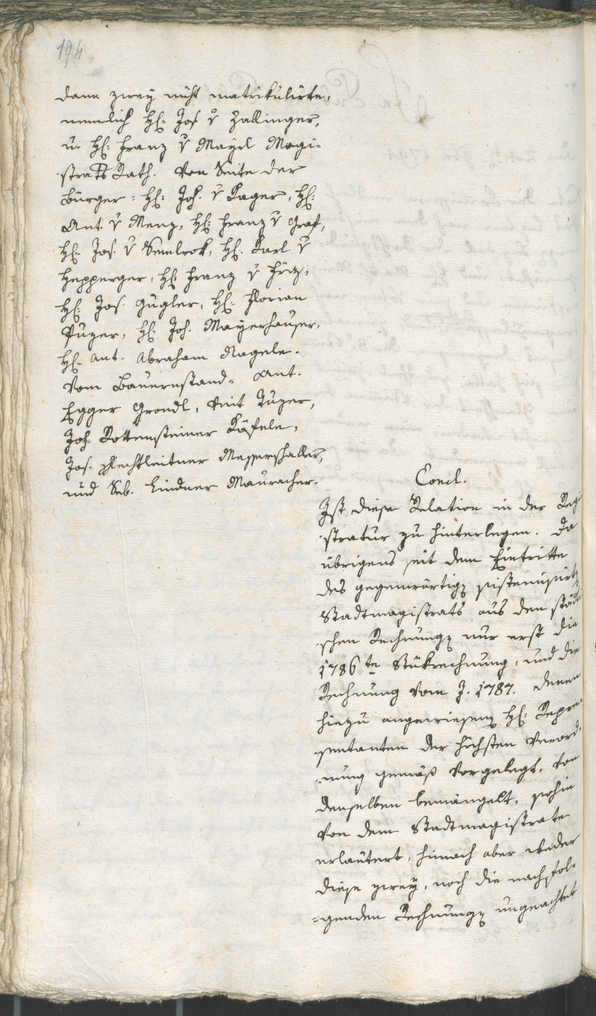 194.
dann zwey nicht matrikulirte,
nemlich H: Jos. v Zallinger,
u. H: Franz v Mayrl Magi-
strats Rath. Von Seite der
Bürger: H: Joh. v Kager, H:
Ant. v Menz, H: Franz v Graf,
H: Jos. v Semlrok, H: Karl v
Hepperger, H: Franz v
H: Jos. Gugler, H: Florian
Puzer, H: Joh. Mayrhauser,
H: Ant. Abraham Nagele.
Vom Bauernstand: Ant.
Egger Grondl, Veit
Joh. Rottensteiner
Jos. Plechtleitner Messerschaller,
und Seb. Lindner Mauracher.
Concl.
Ist diese Relation in der Regi-
stratur zu hinterlegen. Da
übrigens seit dem Eintritte
des gegenwärtigen sistemisirten
Stadtmagistrats aus den städti-
schen Rechnungen nur erst die
1786te Stükrechnung, und die
Rechnung vom J. 1787. denen
hiezu angewiesenen H: Reprä-
sentanten der höchsten Verord-
nung gemäß vorgelegt, von
denselben bemängelt, sohin
von dem Stadtmagistrate
erläutert, hinnach aber weder
diese zwey, noch die nachfol-
genden Rechnungen ungeachtet